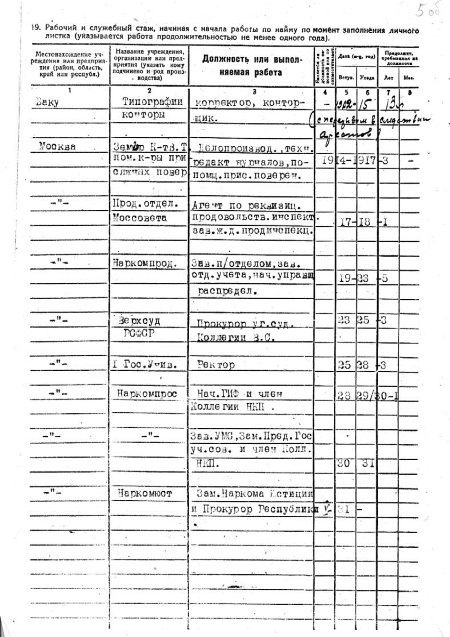 19. Рабочий и служебный стаж, начиная с начала работы по найму по момент заполнения личного
листка (указывается работа продолжительностью не менее одного года).
Местонахождение учреждения или предприятия (район, область, край или республ.)
Название учреждения, организации или предприятия (указать кому подчинено и род производства)
Должность или выполняемая работа
Дата (м-ц, год)
Вступ. Ухода
Лет Мес.
1 2 3 4 5 6 7 8
Баку Типографии корректор, контор- 1912-15
конторы щик.
Москва Земгор К-тВ.Т. Делопроизвод., техн.
пом.к-ры при редакт журналов, по- 1914-1917 -3 -
помщ.прис.поверен.
-"- Прод.отдел. Агент по реквизиц.
Моссовета продовольств.инспект. 17-18 -1
зав.ж.д.продинспекц.
-"- Наркомпрод. Зав.п/отделом, зав.
отд.учета, нач.управл 19-23 -5
распредел.
-"- Верхсуд Прокурор уг.суд. 23 25 -3
РСФСР Коллегии В.С.
-"- I Гос.Унив. Ректор 25 28 -3
-"- Наркомпрос Нач.ГИФ и член 28 29/30-1
Коллегии НКП .
-"- -"- Зав.УМС, Зам.Пред.Гос
уч.сов. и член Колл.
НКП. 30 31
-"- Наркомюст Зам.Наркома Юстиции
и Прокурор Республики 31 -